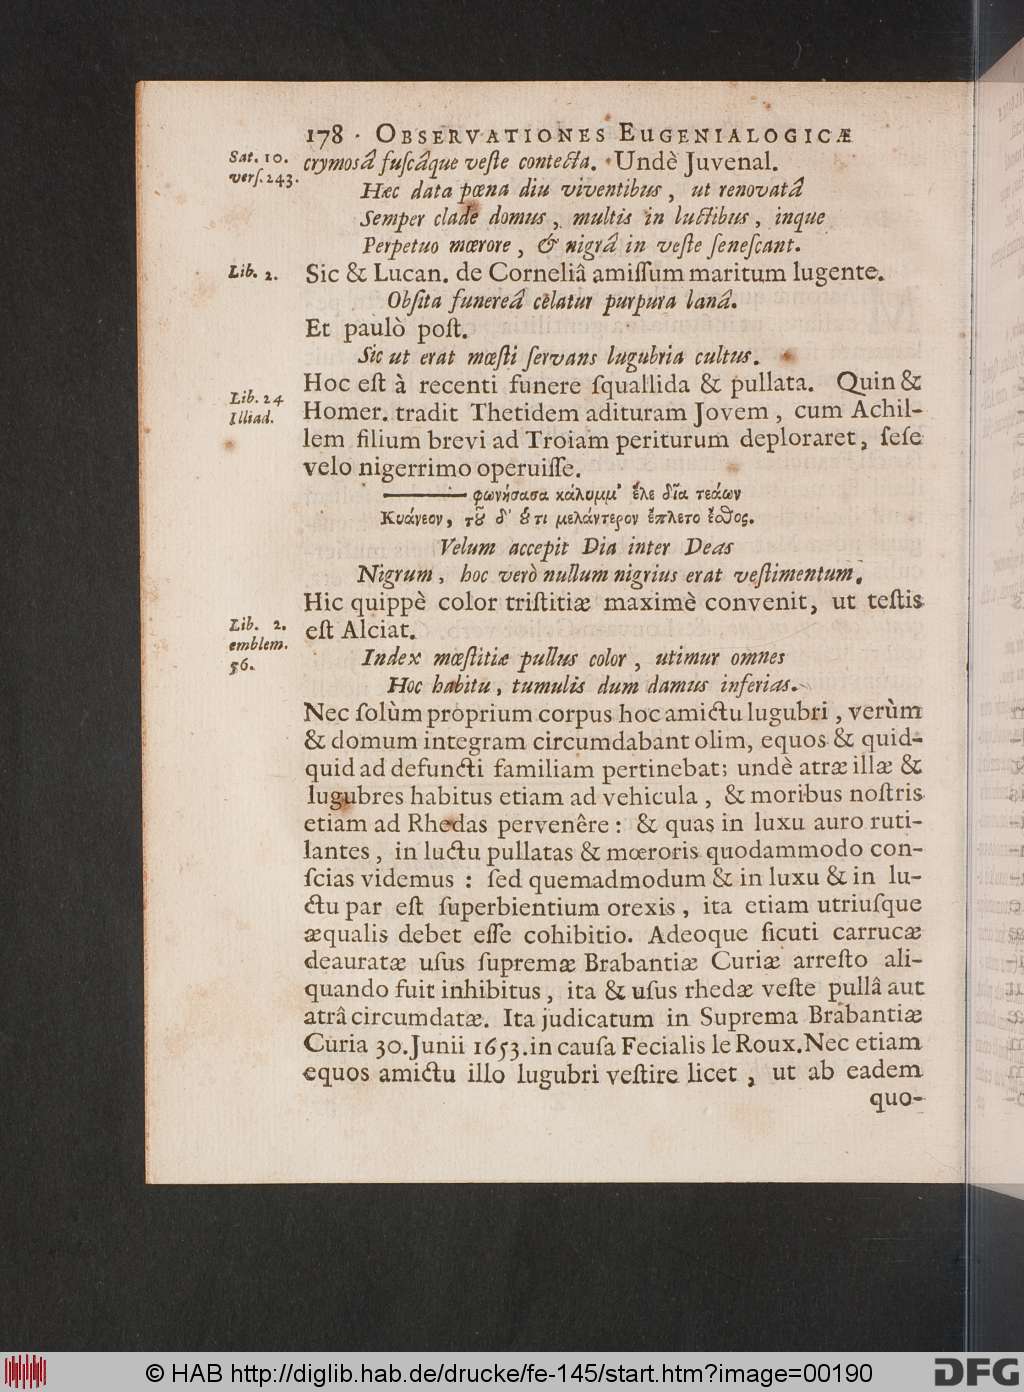 178 · OBSERVATIONES EUGENIALOGICÆ
Sat. 10.
verſ. 243.
crymosâ fuſcâque veſte contecta. Undè Juvenal.
Hæc data pœna diu viventibus, ut renovatâ
Semper clade domus, multis in luctibus, inque
Perpetuo mœrore, & nigrâ in veſte ſeneſcant.
Lib. 2.
Sic & Lucan. de Corneliâ amiſſum maritum lugente.
Obſita funereâ celatur purpura lanâ.
Et paulò poſt.
Sic ut erat mœſti ſervans lugubria cultus.
Hoc eſt à recenti funere ſquallida & pullata. Quin &
Lib. 24
Illiad.
Homer. tradit Thetidem adituram Jovem, cum Achil-
lem filium brevi ad Troiam periturum deploraret, ſeſe
velo nigerrimo operuiſſe.
——— φωνήσασα κάλυμμ' ἕλε δῖα τεάων
Κυάνεον, τοῦ δ' ού τι μελάντερον ἔπλετο ἔσθος.
Velum accepit Dia inter Deas
Nigrum, hoc verò nullum nigrius erat veſtimentum.
Hic quippè color triſtitiæ maximè convenit, ut teſtis
Lib. 2.
emblem.
56.
eſt Alciat.
Index mœſtitiæ pullus color, utimur omnes
Hoc habitu, tumulis dum damus inferias.
Nec ſolùm proprium corpus hoc amictu lugubri, verùm
& domum integram circumdabant olim, equos & quid-
quid ad defuncti familiam pertinebat; undè atræ illæ &
lugubres habitus etiam ad vehicula, & moribus noſtris
etiam ad Rhedas pervenêre: & quas in luxu auro ruti-
lantes, in luctu pullatas & mœroris quodammodo con-
ſcias videmus: ſed quemadmodum & in luxu & in lu-
ctu par eſt ſuperbientium orexis, ita etiam utriuſque
æqualis debet eſſe cohibitio. Adeoque ſicuti carrucæ
deauratæ uſus ſupremæ Brabantiæ Curiæ arreſto ali-
quando fuit inhibitus, ita & uſus rhedæ veſte pullâ aut
atrâ circumdatæ. Ita judicatum in Suprema Brabantiæ
Curia 30. Junii 1653. in cauſa Fecialis le Roux. Nec etiam
equos amictu illo lugubri veſtire licet, ut ab eadem
quo-
© HAB http://diglib.hab.de/drucke/fe-145/start.htm?image=00190
DFG